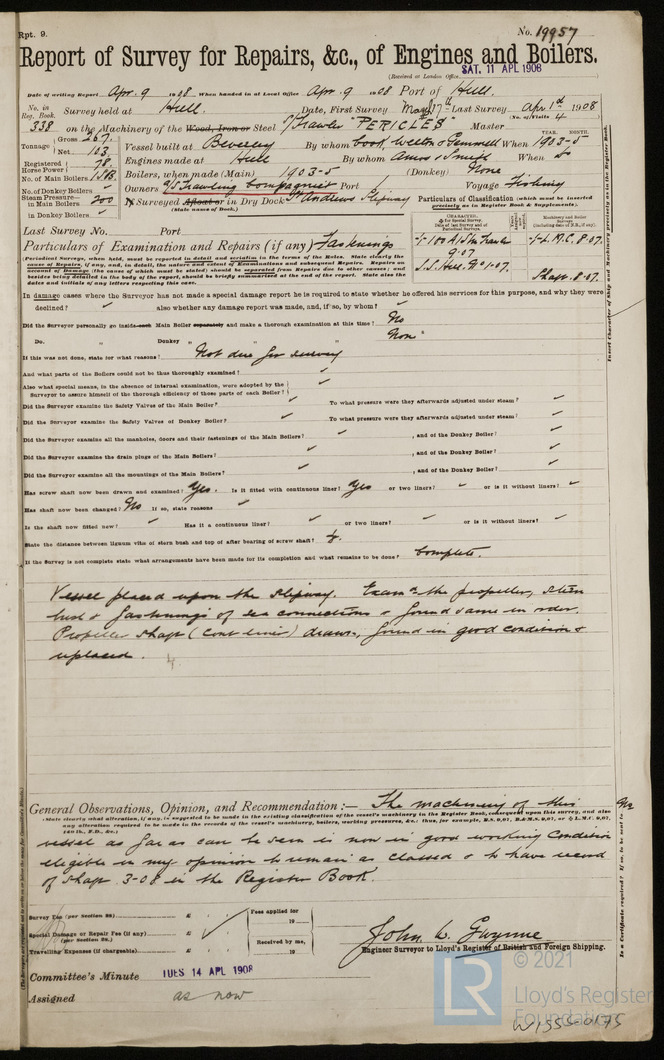 Rpt. 9.
No. 19957
Report of Survey for Repairs, &c., of Engines and Boilers.
(Received at London Office SAT. 11 APL 1908)
Date of writing Report Apr. 9 1908 When handed in at Local Office Apr. 9 1908 Port of Hull.
No. in Reg. Book. Survey held at Hull. Date, First Survey Mar 17th Last Survey Apr. 1st 1908
(No. of Visits 4)
338 on the Machinery of the Wood, Iron or Steel S/Trawler "PERICLES" Master
Tonnage Gross 267.
Net 103.
Vessel built at Beverley By whom Cook, Welton & Gemmell When 1903-5
YEAR. MONTH.
Registered Horse Power 78.
Engines made at Hull By whom Amos & Smith When do
No. of Main Boilers 1SB.
Boilers, when made (Main) 1903-5 (Donkey) None
No. of Donkey Boilers
Owners Trawling Compagniet Port Voyage Fishing
Steam Pressure in Main Boilers 200
in Donkey Boilers
If Surveyed Afloat or in Dry Dock St Andrews Slipway
(State name of Dock.)
Particulars of Classification (which must be inserted precisely as in Register Book & Supplements).
CHARACTER. for Special Survey. Date of last Survey and of Periodical Surveys.
Machinery and Boiler Surveys (including date of N.B., if any).
+100A1 Stm Trawler
9.07
S.S. Hull. No 1-07.
+L.M.C. 8.07.
Shaft. 8.07.
Last Survey No. Port
Particulars of Examination and Repairs (if any) Fastenings
(Periodical Surveys, when held, must be reported in detail and seriatim in the terms of the Rules. State clearly the
cause of Repairs, if any, and, in detail, the nature and extent of Examinations and subsequent Repairs. Repairs on
account of Damage (the cause of which must be stated) should be separated from Repairs due to other causes; and
besides being detailed in the body of the report, should be briefly summarized at the end of the report. State also the
dates and initials of any letters respecting this case.
In damage cases where the Surveyor has not made a special damage report he is required to state whether he offered his services for this purpose, and why they were
declined? also whether any damage report was made, and, if so, by whom?
Did the Surveyor personally go inside each Main Boiler separately and make a thorough examination at this time? No
Do. " Donkey " " " None
If this was not done, state for what reasons? Not due for survey
And what parts of the Boilers could not be thus thoroughly examined?
Also what special means, in the absence of internal examination, were adopted by the
Surveyor to assure himself of the thorough efficiency of those parts of each Boiler?
Did the Surveyor examine the Safety Valves of the Main Boiler? To what pressure were they afterwards adjusted under steam?
Did the Surveyor examine the Safety Valves of Donkey Boiler? To what pressure were they afterwards adjusted under steam?
Did the Surveyor examine all the manholes, doors and their fastenings of the Main Boilers? , and of the Donkey Boiler?
Did the Surveyor examine the drain plugs of the Main Boilers? , and of the Donkey Boiler?
Did the Surveyor examine all the mountings of the Main Boilers? , and of the Donkey Boiler?
Has screw shaft now been drawn and examined? Yes. Is it fitted with continuous liner? Yes or two liners? or is it without liners?
Has shaft now been changed? No If so, state reasons
Is the shaft now fitted new? Has it a continuous liner? or two liners? or is it without liners?
State the distance between lignum vitæ of stern bush and top of after bearing of screw shaft?
If the Survey is not complete state what arrangements have been made for its completion and what remains to be done? Complete.
Vessel placed upon the slipway. Examd the propeller, stern
bush & fastenings of sea connections & found same in order.
Propeller shaft (Cont liner) drawn, found in good condition &
replaced.
General Observations, Opinion, and Recommendation:— The machinery of this
(State clearly what alteration, if any, is suggested to be made in the existing classification of the vessel's machinery in the Register Book, consequent upon this survey, and also
any alteration required to be made in the records of the vessel's machinery, boilers, working pressures, &c.; thus, for example, B.S. 9,07, B.&M.S. 9,07, or L.M.C. 9,07,
140 lb., F.D., &c.)
vessel as far as can be seen is now in good working condition
eligible in my opinion to remain as classed & to have record
of Shaft 3-08 in the Register Book.
Survey Fee (per Section 28) £
Special Damage or Repair Fee (if any) (per Section 28.) £
Travelling Expenses (if chargeable) £
Fees applied for
19
Received by me,
19
John W. Gwynne
Engineer Surveyor to Lloyd's Register of British and Foreign Shipping.
Committee's Minute TUES 14 APL 1908
Assigned as now
Insert Character of Ship and Machinery precisely as in the Register Book.
© 2021
LR
Lloyd's Register
Foundation
W1355-0175